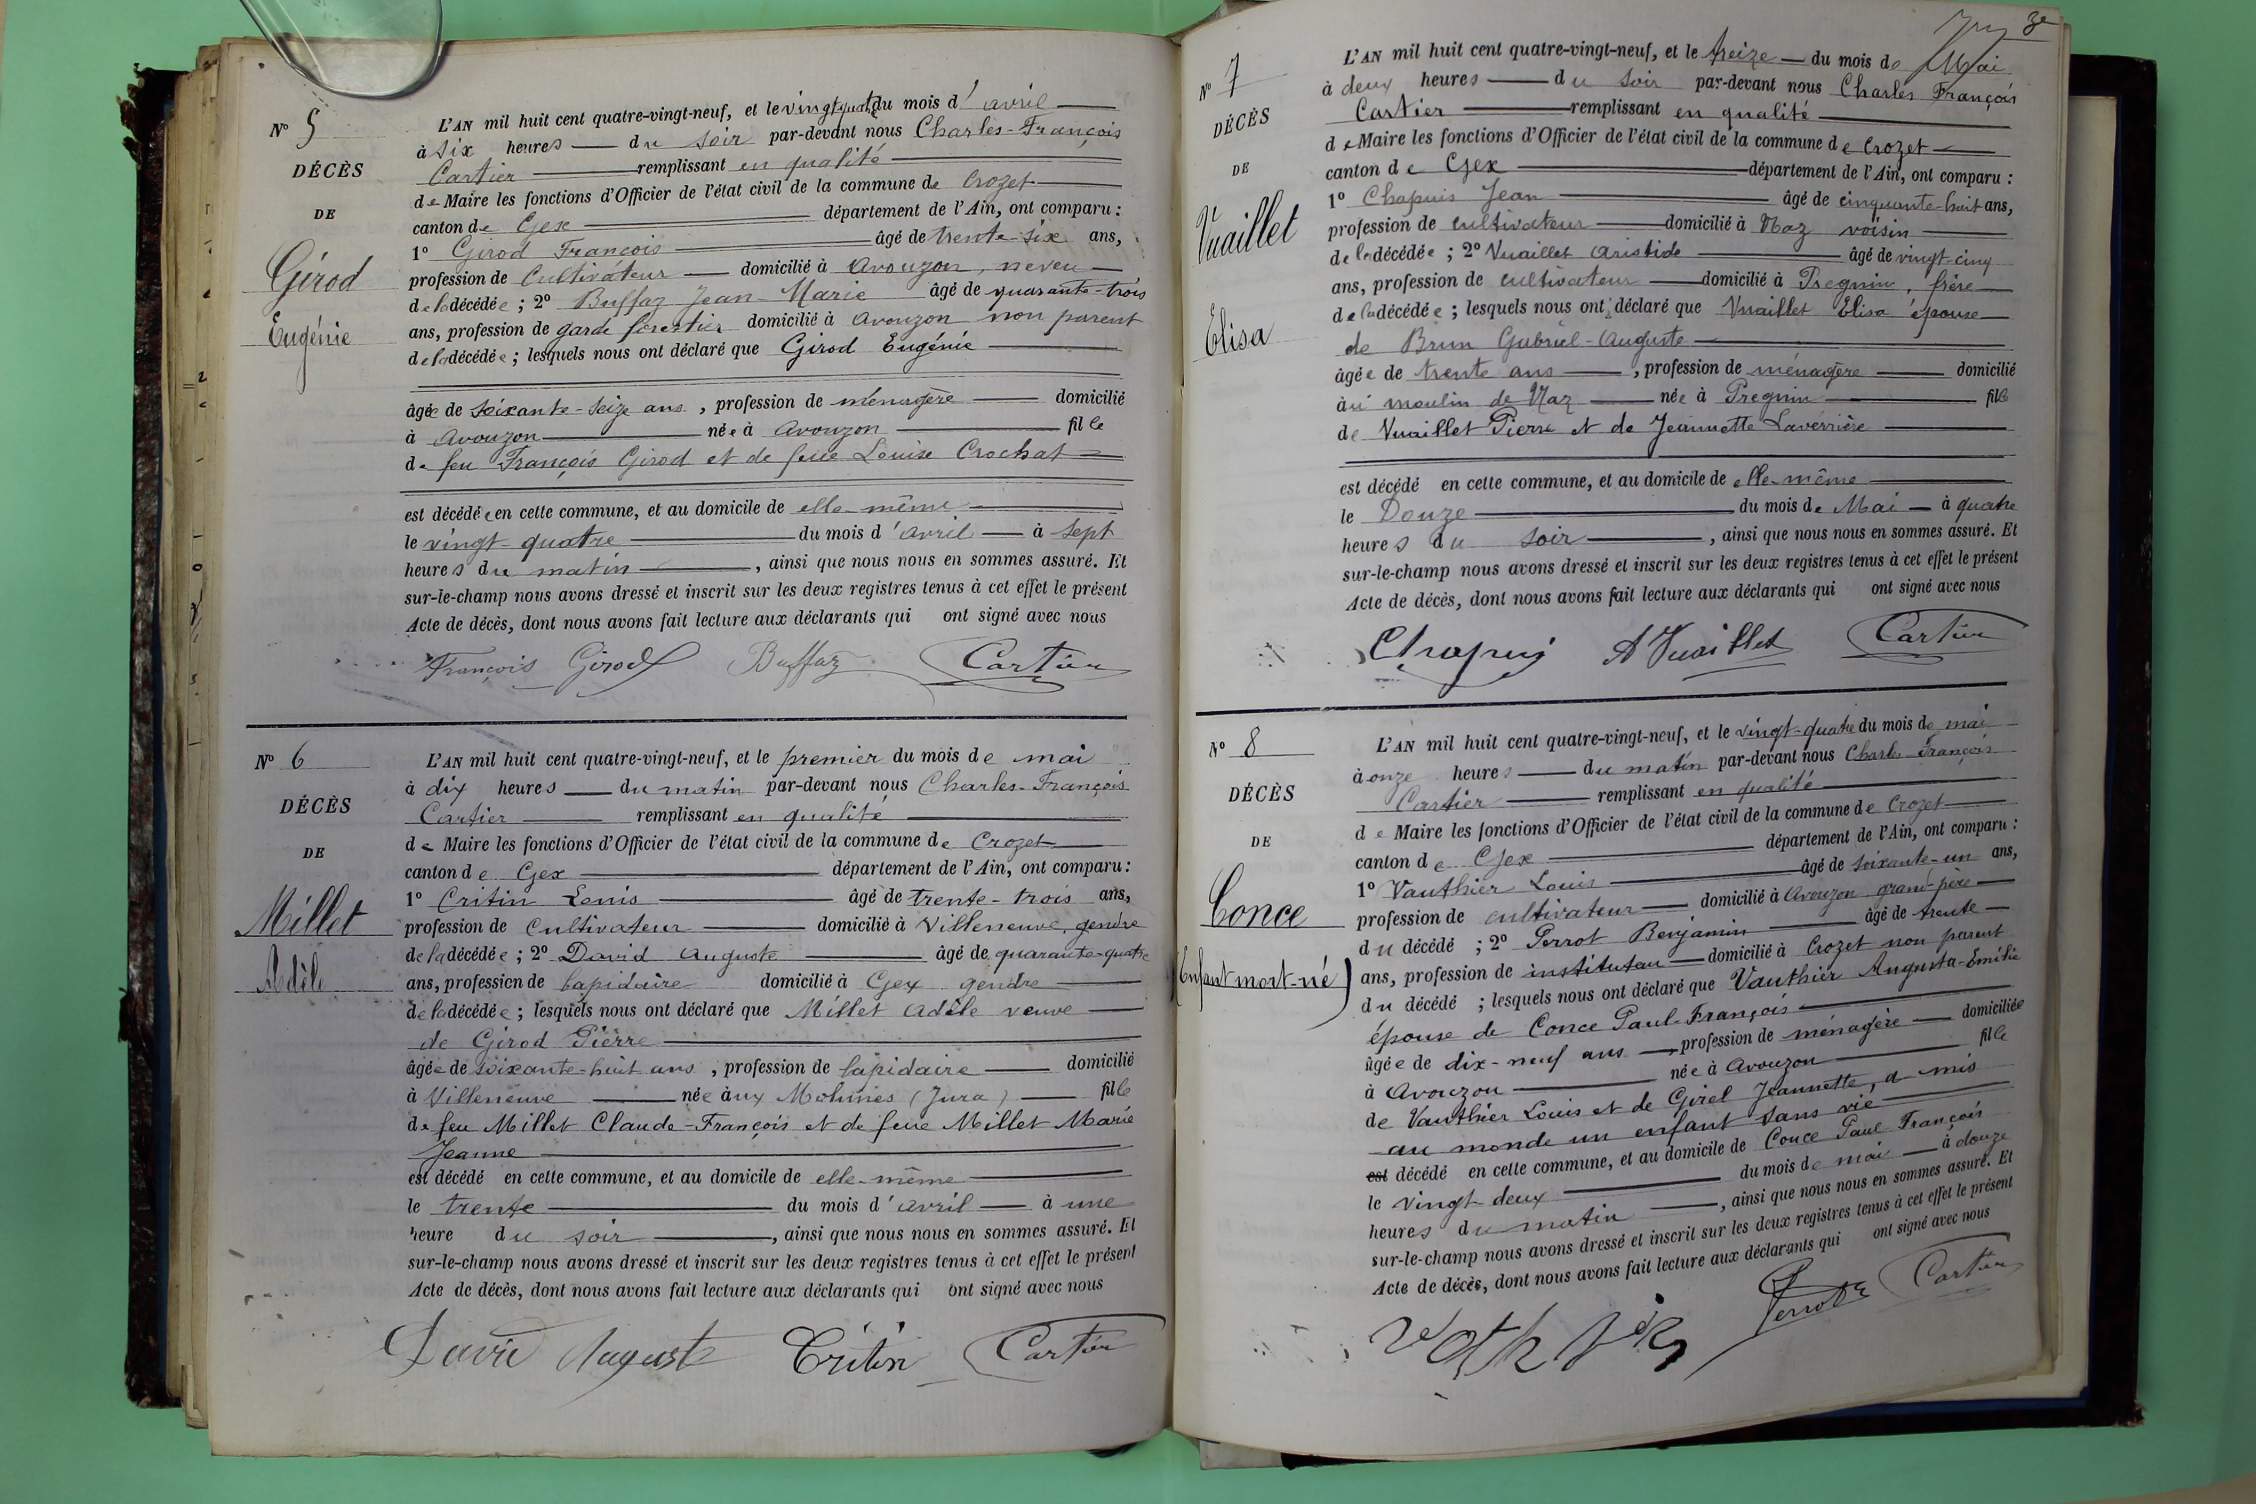 N° 5
DÉCÈS
DE
Girod
Eugénie
L'AN mil huit cent quatre-vingt-neuf, et le vingt quatre du mois d'avril
à six heures du soir par-devant nous Charles-François
Cartier remplissant en qualité
de Maire les fonctions d'Officier de l'état civil de la commune de Crozet
canton de Gex département de l'Ain, ont comparu :
1° Girod François âgé de trente-six ans,
profession de Cultivateur domicilié à Avouzon, neveu
de la décédée ; 2° Buffaz Jean-Marie âgé de quarante-trois
ans, profession de garde forestier domicilié à Avouzon non parent
de la décédée ; lesquels nous ont déclaré que Girod Eugénie
âgée de soixante-seize ans, profession de ménagère domicilié
à Avouzon née à Avouzon fille
de feu François Girod et de feue Louise Crochat
est décédée en cette commune, et au domicile de elle-même
le vingt quatre du mois d'avril à sept
heures du matin, ainsi que nous nous en sommes assuré. Et
sur-le-champ nous avons dressé et inscrit sur les deux registres tenus à cet effet le présent
Acte de décès, dont nous avons fait lecture aux déclarants qui ont signé avec nous
François Girod Buffaz Cartier
N° 6
DÉCÈS
DE
Millet
Adèle
L'AN mil huit cent quatre-vingt-neuf, et le premier du mois de mai
à dix heures du matin par-devant nous Charles-François
Cartier remplissant en qualité
de Maire les fonctions d'Officier de l'état civil de la commune de Crozet
canton de Gex département de l'Ain, ont comparu :
1° Critin Louis âgé de trente-trois ans,
profession de Cultivateur domicilié à Villeneuve, gendre
de la décédée ; 2° David Auguste âgé de quarante-quatre
ans, profession de lapidaire domicilié à Gex gendre
de la décédée ; lesquels nous ont déclaré que Millet Adèle veuve
de Girod Pierre
âgée de soixante-huit ans, profession de lapidaire domicilié
à Villeneuve née aux Molunes (Jura) fille
de feu Millet Claude-François et de feue Millet Marie
Jeanne
est décédé en cette commune, et au domicile de elle-même
le trente du mois d'avril à une
heure du soir, ainsi que nous nous en sommes assuré. Et
sur-le-champ nous avons dressé et inscrit sur les deux registres tenus à cet effet le présent
Acte de décès, dont nous avons fait lecture aux déclarants qui ont signé avec nous
David Auguste Critin Cartier
3e
N° 7
DÉCÈS
DE
Vuaillet
Élisa
L'AN mil huit cent quatre-vingt-neuf, et le treize du mois de Mai
à deux heures du soir par-devant nous Charles François
Cartier remplissant en qualité
de Maire les fonctions d'Officier de l'état civil de la commune de Crozet
canton de Gex département de l'Ain, ont comparu :
1° Chapuis Jean âgé de cinquante-huit ans,
profession de cultivateur domicilié à Naz voisin
de la décédée ; 2° Vuaillet Aristide âgé de vingt-cinq
ans, profession de cultivateur domicilié à Pregnin, frère
de la décédée ; lesquels nous ont déclaré que Vuaillet Elisa épouse
de Brun Gabriel-Auguste
âgée de trente ans, profession de ménagère domicilié
au moulin de Naz née à Pregnin fille
de Vuaillet Pierre et de Jeannette Laverrière
est décédé en cette commune, et au domicile de elle-même
le Douze du mois de Mai à quatre
heures du soir, ainsi que nous nous en sommes assuré. Et
sur-le-champ nous avons dressé et inscrit sur les deux registres tenus à cet effet le présent
Acte de décès, dont nous avons fait lecture aux déclarants qui ont signé avec nous
Chapuis A Vuaillet Cartier
N° 8
DÉCÈS
DE
Conce
(Enfant mort-né)
L'AN mil huit cent quatre-vingt-neuf, et le vingt-quatre du mois de mai
à onze heures du matin par-devant nous Charles François
Cartier remplissant en qualité
de Maire les fonctions d'Officier de l'état civil de la commune de Crozet
canton de Gex département de l'Ain, ont comparu :
1° Vauthier Louis âgé de soixante-un ans,
profession de cultivateur domicilié à Avouzon grand-père
du décédé ; 2° Perrot Benjamin âgé de trente
ans, profession de instituteur domicilié à Crozet non parent
du décédé ; lesquels nous ont déclaré que Vauthier Augusta-Emélie
épouse de Conce Paul-François
âgée de dix-neuf ans, profession de ménagère domiciliée
à Avouzon née à Avouzon fille
de Vauthier Louis et de Girel Jeannette, a mis
au monde un enfant sans vie
est décédé en cette commune, et au domicile de Conce Paul François
le vingt deux du mois de mai à douze
heures du matin, ainsi que nous nous en sommes assuré. Et
sur-le-champ nous avons dressé et inscrit sur les deux registres tenus à cet effet le présent
Acte de décès, dont nous avons fait lecture aux déclarants qui ont signé avec nous
Perrot Cartier